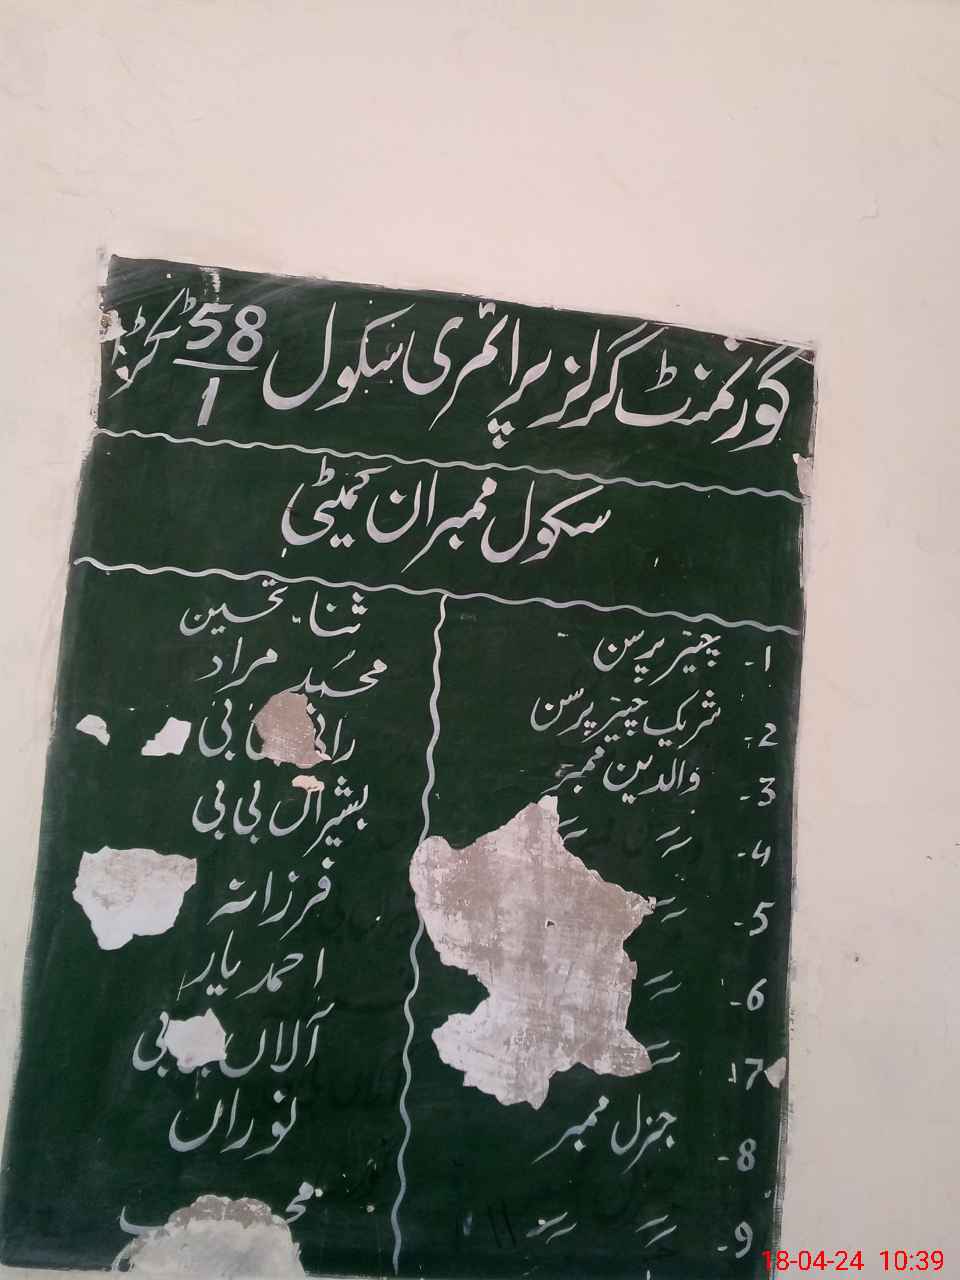 گورنمنٹ گرلز پرائمری سکول 58/1 ٹکڑا
سکول ممبران کمیٹی
1- چیئر پرسن ثناء تحسین
2- شریک چیئر پرسن محمد مراد
3- والدین ممبر بی
4- 〃 〃 بشیراں بی بی
5- 〃 فرزانہ
6- 〃 احمد یار
7- 〃 آلاں بی
8- جنرل ممبر نوراں
9- 〃 〃
18-04-24 10:39